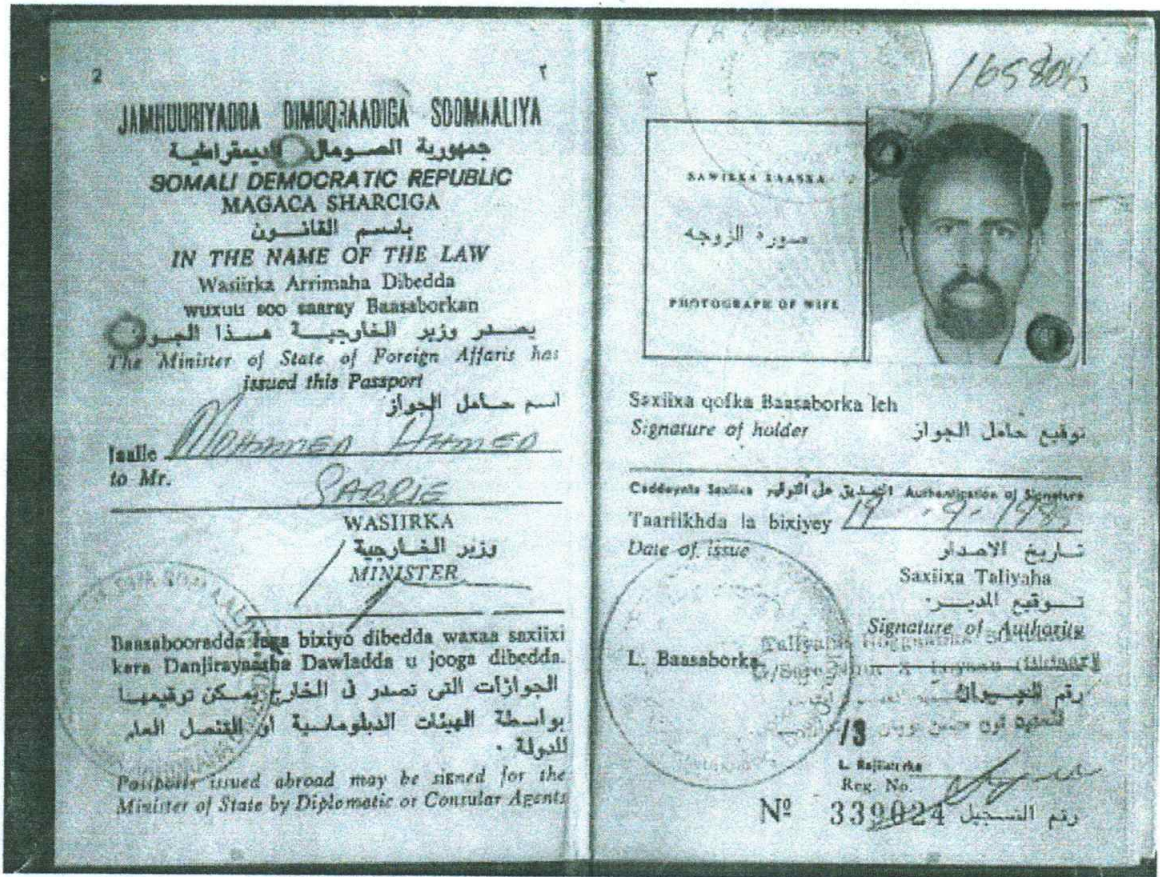 2 ٢
JAMHUURIYADDA DIMOQRAADIGA SOOMAALIYA
جمهورية الصومال الديمقراطية
SOMALI DEMOCRATIC REPUBLIC
MAGACA SHARCIGA
باسم القانون
IN THE NAME OF THE LAW
Wasiirka Arrimaha Dibedda
wuxuu soo saaray Baasaborkan
يصدر وزير الخارجية هذا
The Minister of State of Foreign Affaris has
issued this Passport
اسم حامل الجواز
Jaalle MOHAMED AHMED
to Mr.
SABRIE
WASIIRKA
وزير الخارجية
MINISTER
Baasabooradda laga bixiyo dibedda waxaa saxiixi
kara Danjirayaasha Dawladda u jooga dibedda.
الجوازات التى تصدر فى الخارج يمكن توقيعها
بواسطة الهيئات الدبلوماسية او القنصل العام
للدولة ٠
Passports issued abroad may be signed for the
Minister of State by Diplomatic or Consular Agents
٣
SAWIRKA XAASKA
صورة الزوجه
PHOTOGRAPH OF WIFE
Saxiixa qofka Baasaborka leh
Signature of holder توقيع حامل الجواز
Caddeynta Saxiixa التصديق على التوقيع Authentication of Signature
Taariikhda la bixiyey
Date of issue تاريخ الاصدار
Saxiixa Taliyaha
توقيع المدير٠
Signature of Authority
L. Baasaborka
رقم الجواز
/3
L. Rejisterka
Reg. No.
Nº 339024 رقم التسجيل